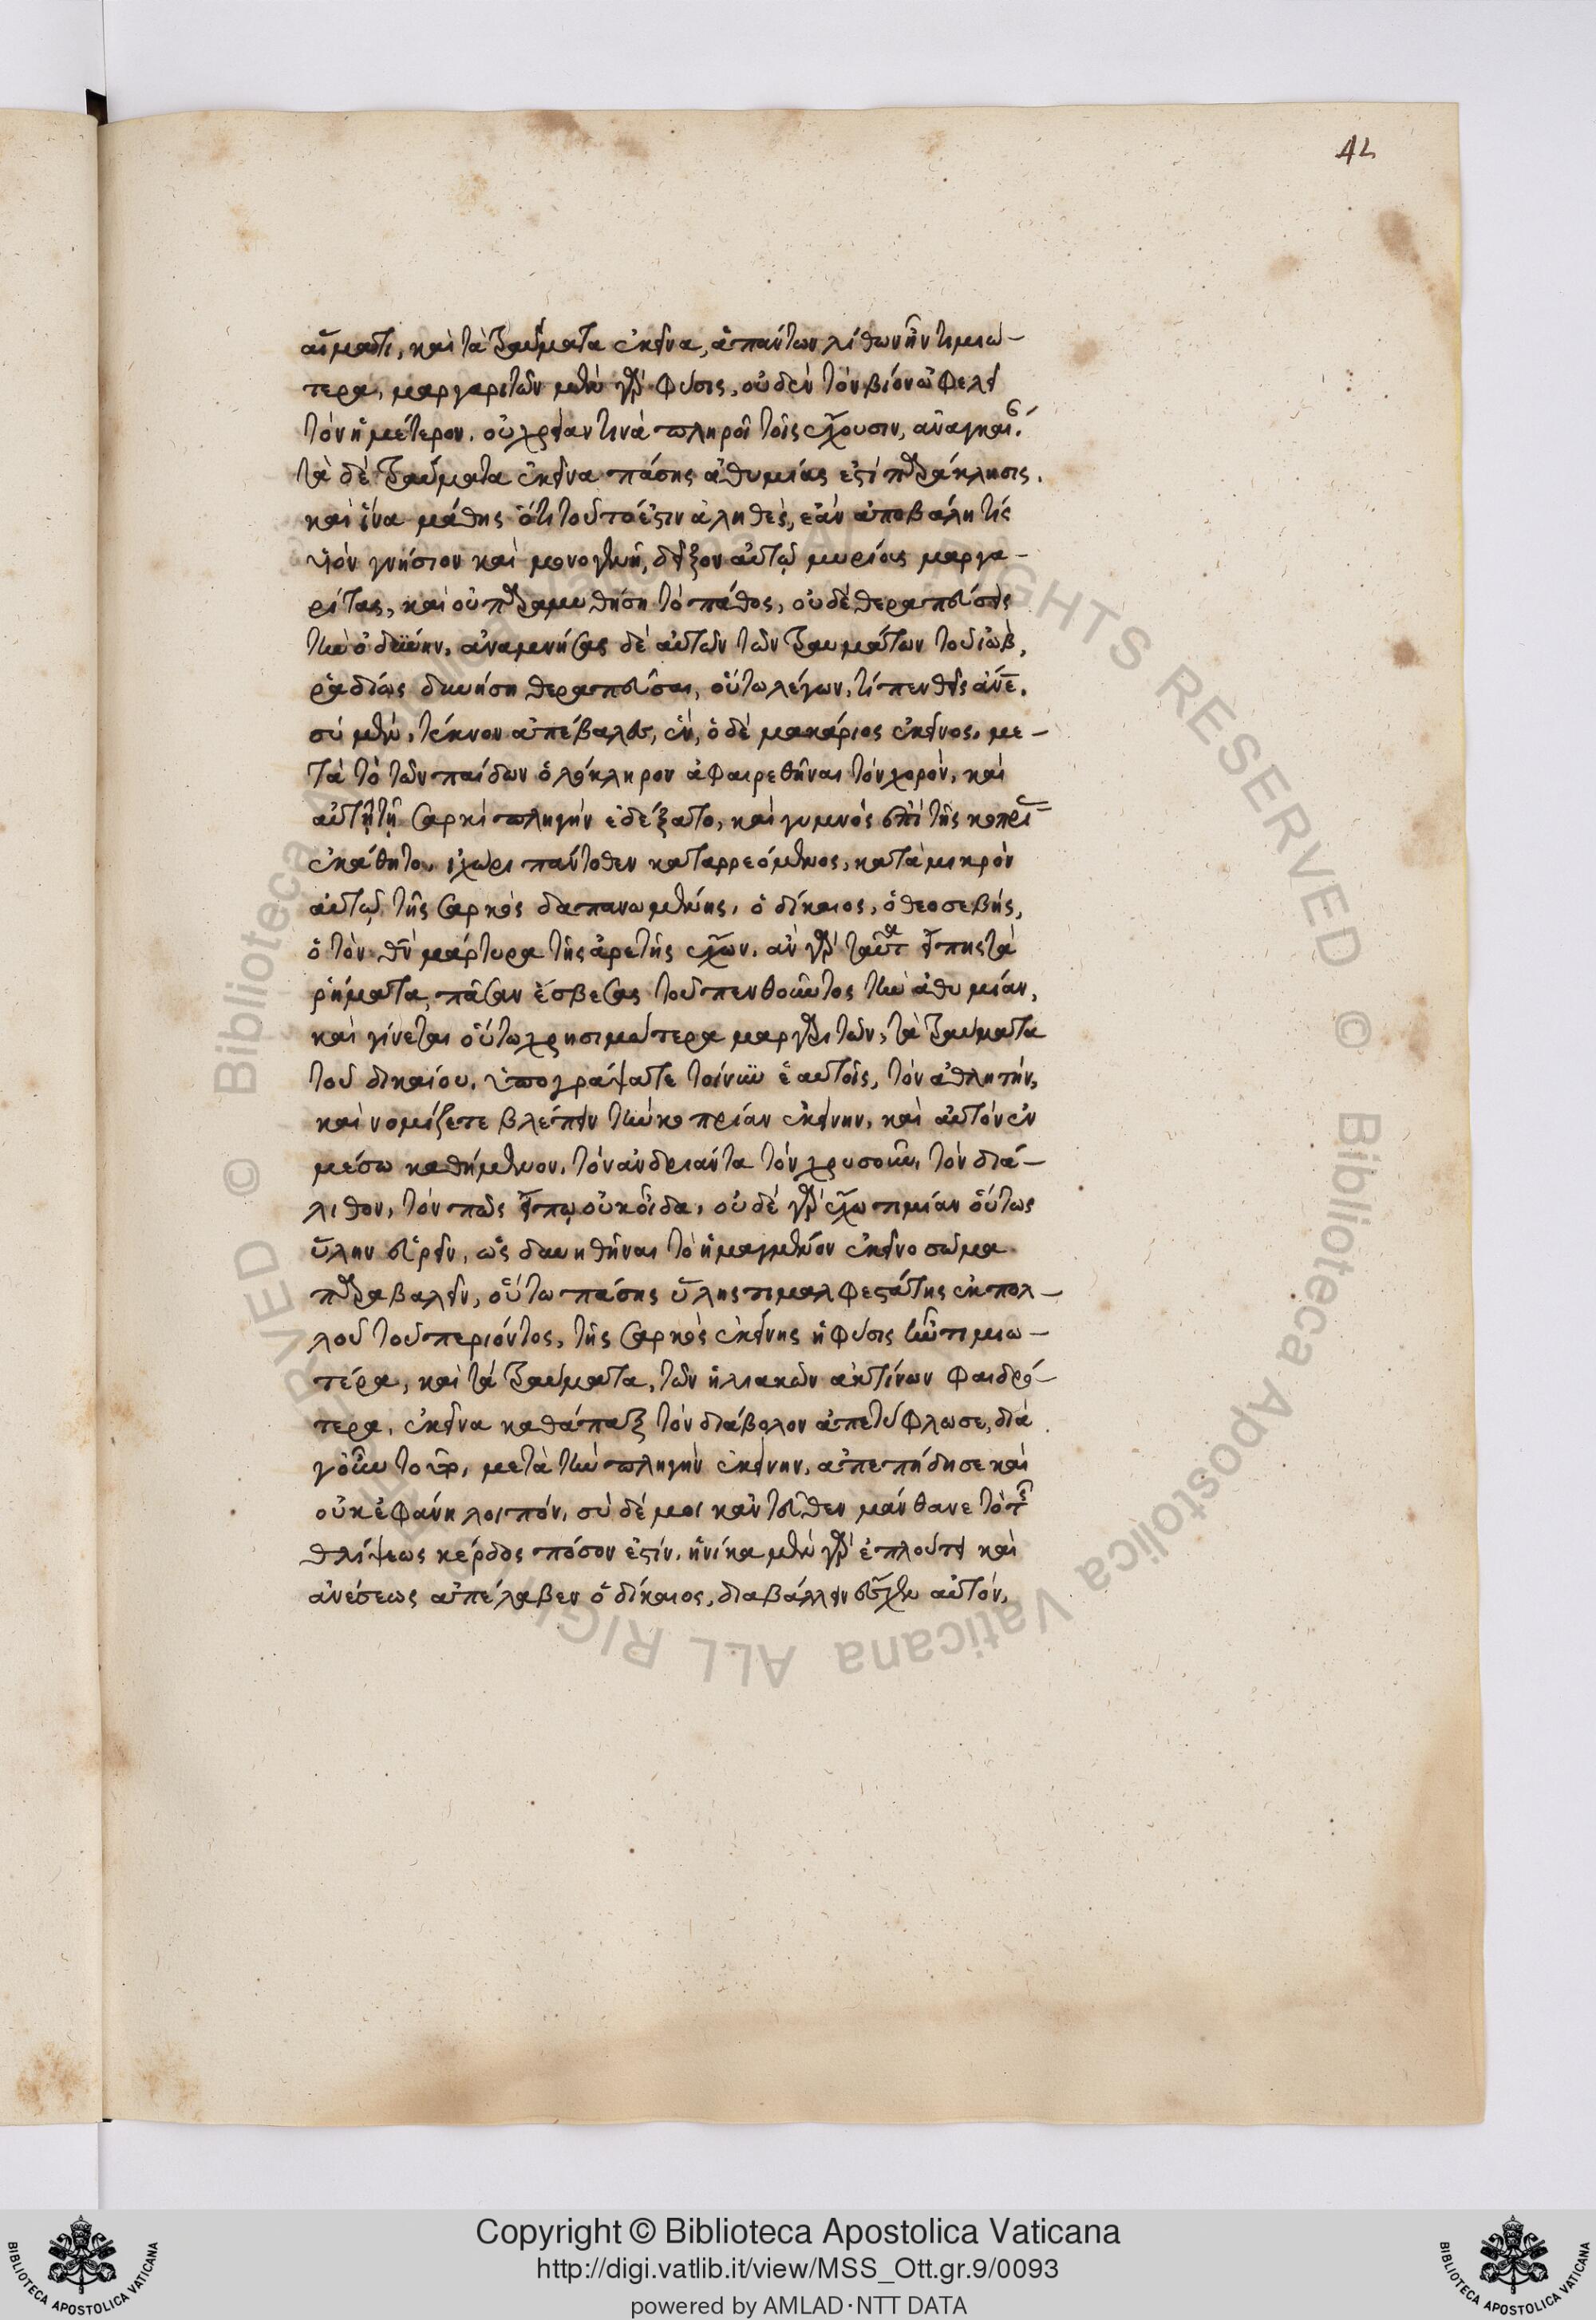 42
αἵματι, καὶ τὰ τραύματα ἐκεῖνα, ἁπάντων λίθων ἦν τιμιώ-
τερα, μαργαριτῶν μὲν γὰρ φύσις, οὐδὲν τὸν βίον ὠφελεῖ
τὸν ἡμέτερον. οὐ χρείαν τινὰ πληροῖ τοῖς ἔχουσιν, ἀναγκαί.
τὰ δὲ τραύματα ἐκεῖνα πάσης ἀθυμίας ἐστὶ παράκλησις.
καὶ ἵνα μάθης ὅτι τοῦτό ἐστιν ἀληθές, ἐὰν ἀποβάλη τίς
υἱὸν γνήσιον καὶ μονογενῆ, δεῖξον αὐτῷ μυρίους μαργα-
ρίτας, καὶ οὐ παραμυθήση τὸ πάθος, οὐδὲ θεραπεύσεις
τὴν ὀδύνην, ἀναμνήσας δὲ αὐτὸν τῶν τραυμάτων τοῦ ἰώβ,
ῥαδίως δυνήση θεραπεῦσαι, οὕτω λέγων, τί πενθεῖς ἄνε.
σὺ μὲν, τέκνον ἀπέβαλες, ἕν, ὁ δὲ μακάριος ἐκεῖνος, με-
τὰ τὸ τῶν παίδων ὁλόκληρον ἀφαιρεθῆναι τὸν χορὸν, καὶ
αὐτῇ τῇ σαρκὶ πληγὴν ἐδέξατο, καὶ γυμνὸς ἐπὶ τῆς κοπρί
ἐκάθητο, ἰχῶρι πάντοθεν καταρρεόμενος, κατὰ μικρὸν
αὐτῷ τῆς σαρκὸς δαπανωμένης, ὁ δίκαιος, ὁ θεοσεβής,
ὁ τὸν θν μάρτυρα τῆς ἀρετῆς ἔχων. ἂν γὰρ ταῦτα εἴπης τὰ
ῥήματα, πᾶσαν ἔσβεσας τοῦ πενθοῦντος τὴν ἀθυμίαν,
καὶ γίνεται οὕτω χρησιμώτερα μαργαριτῶν, τὰ τραύματα
τοῦ δικαίου. ὑπογράψατε τοίνυν ἑαυτοῖς, τὸν ἀθλητήν,
καὶ νομίζετε βλέπειν τὴν κοπρίαν ἐκείνην, καὶ αὐτὸν ἐν
μέσω καθήμενον, τὸν ἀνδριάντα τὸν χρυσοῦν, τὸν διά-
λιθον, τὸν πῶς εἴπω οὐκ οἶδα, οὐδὲ γὰρ ἔχω τιμίαν οὕτως
ὕλην εὑρεῖν, ὡς δυνηθῆναι τὸ ἡμαγμένον ἐκεῖνο σῶμα
παραβαλεῖν, οὕτω πάσης ὕλης τιμαλφεστάτης ἐκ πολ-
λοῦ τοῦ περιόντος, τῆς σαρκὸς ἐκείνης ἡ φύσις ἦν τιμιω-
τέρα, καὶ τὰ τραύματα, τῶν ἡλιακῶν ἀκτίνων φαιδρό-
τερα, ἐκεῖνα καθάπαξ τὸν διάβολον ἀπετύφλωσε, διὰ
γοῦν τοῦτο, μετὰ τὴν πληγὴν ἐκείνην, ἀπεπήδησε καὶ
οὐκ ἐφάνη λοιπόν, σὺ δέ μοι κἀντεῦθεν μάνθανε τὸ τῆς
θλίψεως κέρδος πόσον ἐστίν. ἡνίκα μὲν γὰρ ἐπλούτει καὶ
ἀνέσεως ἀπέλαβεν ὁ δίκαιος, διαβάλλειν εἶχεν αὐτόν,
© Biblioteca Apostolica Vaticana ALL RIGHTS RESERVED
Copyright © Biblioteca Apostolica Vaticana
http://digi.vatlib.it/view/MSS_Ott.gr.9/0093
powered by AMLAD·NTT DATA
BIBLIOTECA APOSTOLICA VATICANA
BIBLIOTECA APOSTOLICA VATICANA